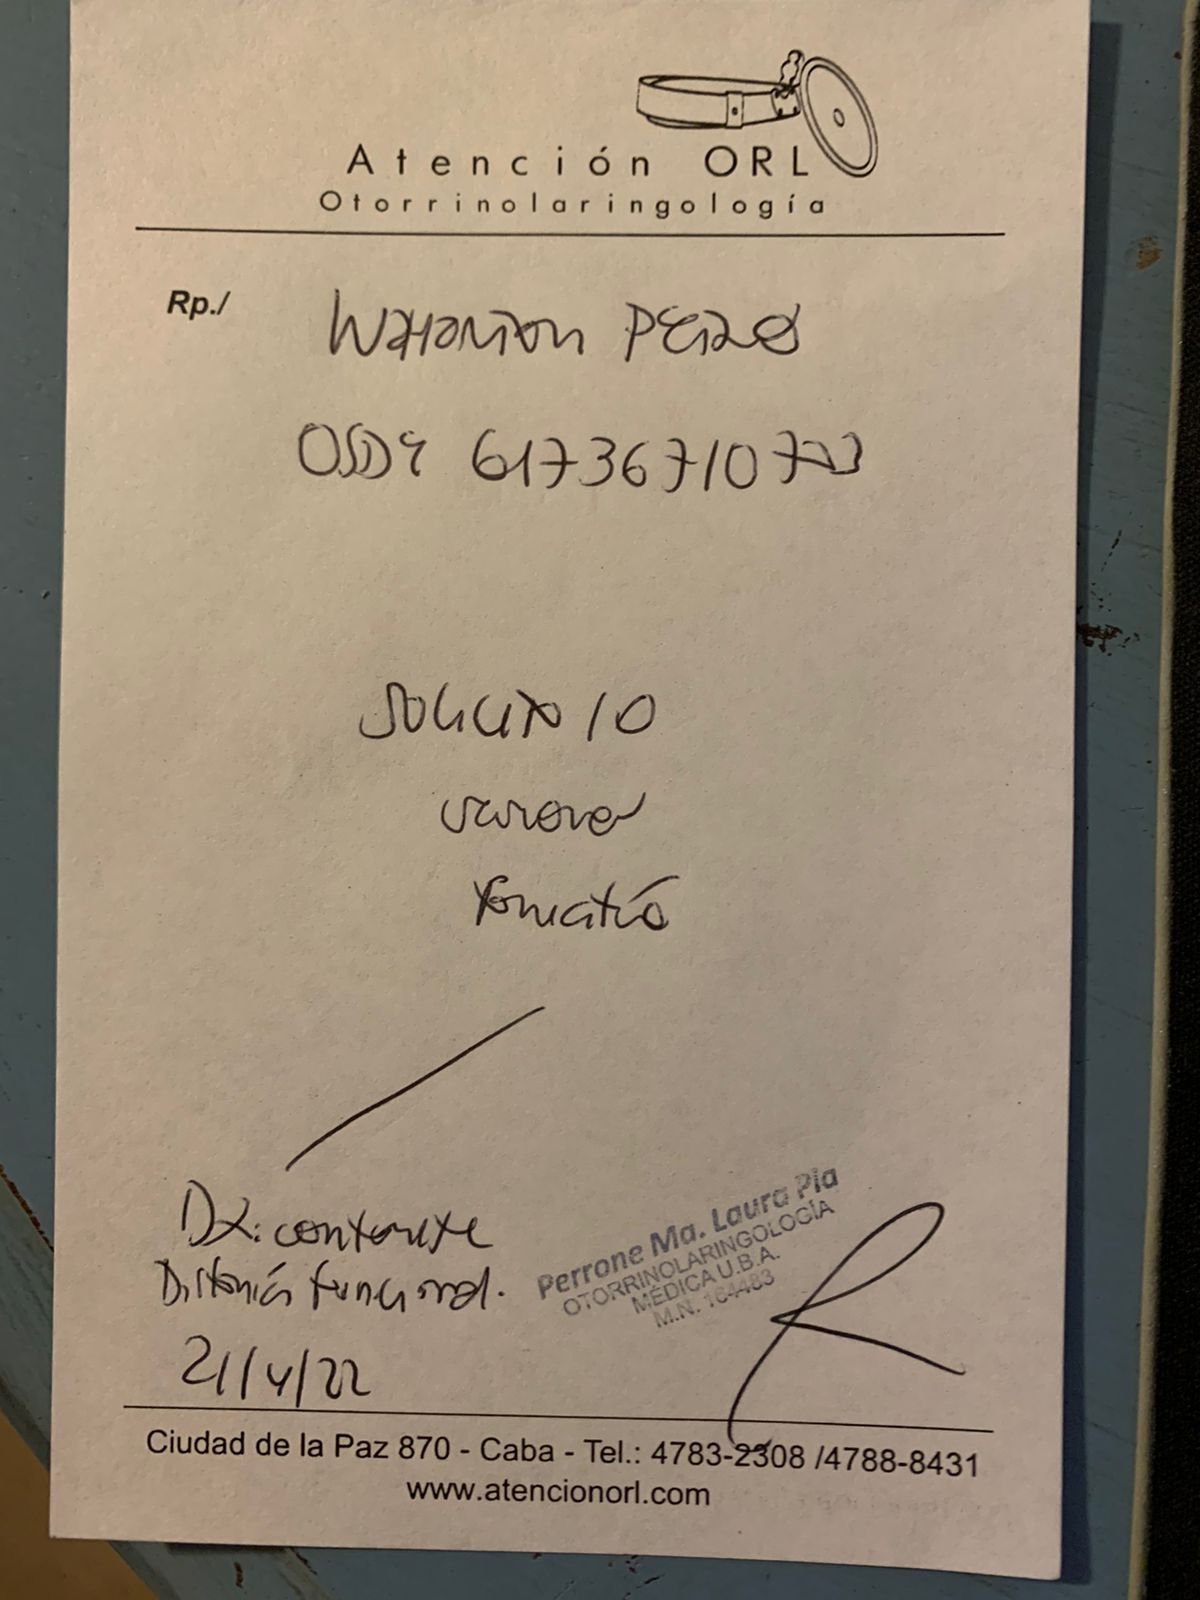 Atención ORL
Otorrinolaringología
Rp./
OSDE 61736710
Solicito 10
foniatría
Dx: contorete
Distonía funcional.
21/4/22
Perrone Ma. Laura Pia
OTORRINOLARINGOLOGÍA
MÉDICA U.B.A.
M.N. 164483
Ciudad de la Paz 870 - Caba - Tel.: 4783-2308 /4788-8431
www.atencionorl.com